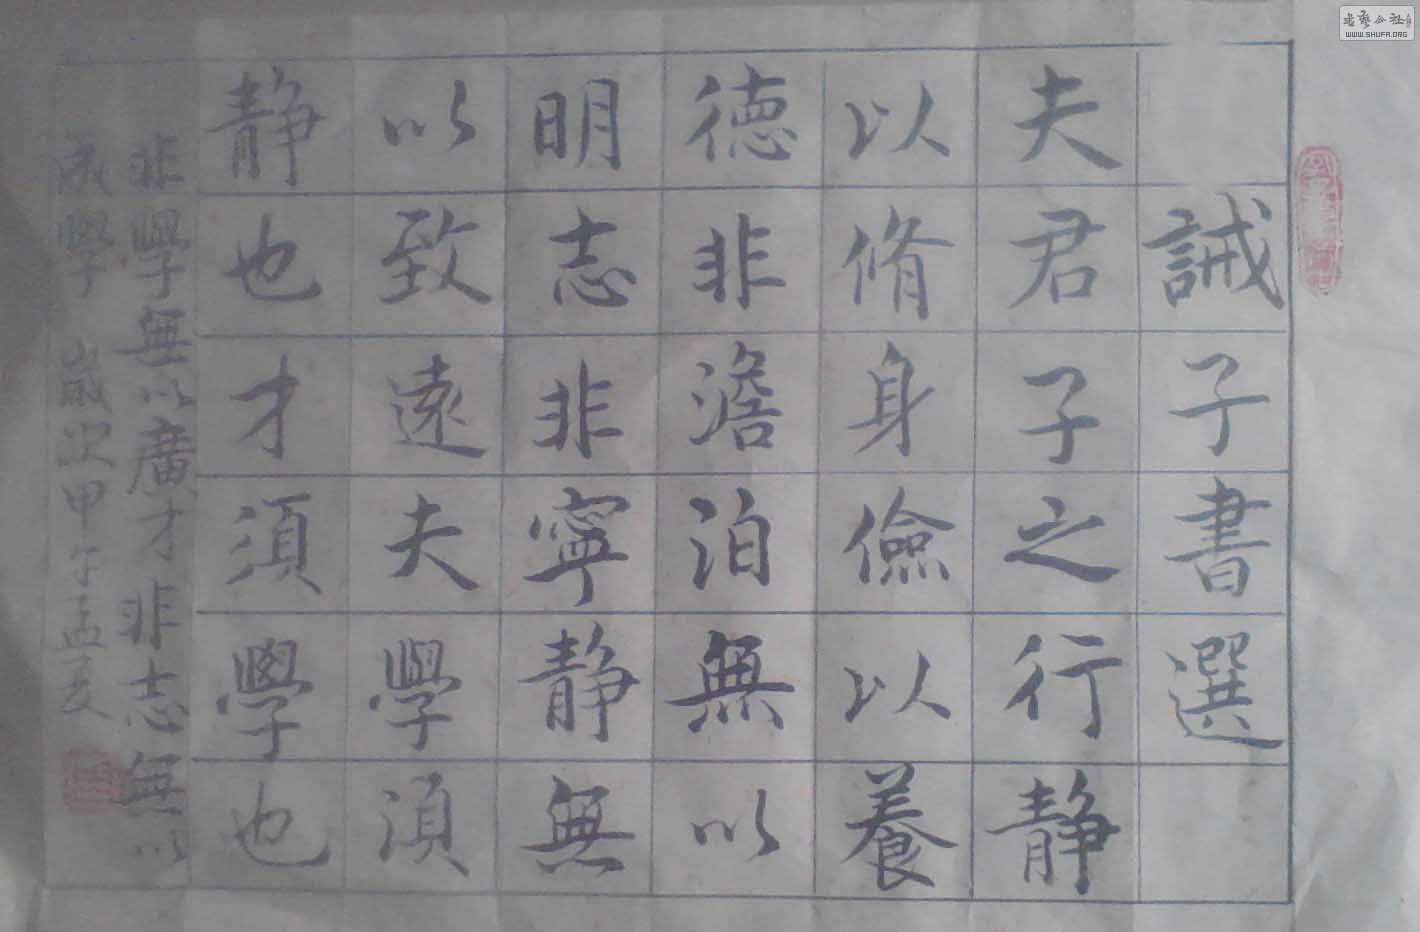 誡子書選
夫君子之行静
以脩身儉以養
德非澹泊無以
明志非寧静無
以致遠夫學須
静也才須學也
非學無以廣才非志無以
成學 嵗次甲午孟夏
书艺公社
WWW.SHUFA.ORG